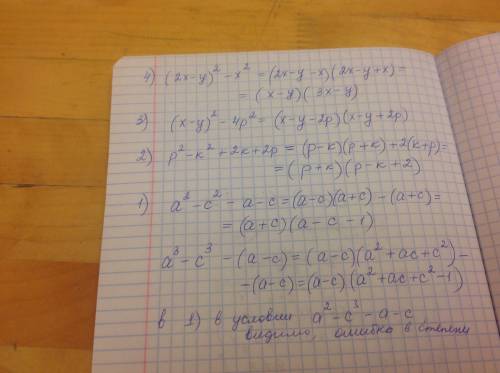 4) (2x-y)² - x² = (2x-y-x)(2x-y+x) =
= (x-y)(3x-y)
3) (x-y)² - 4p² = (x-y-2p)(x-y+2p)
2) p² - k² + 2k + 2p = (p-k)(p+k) + 2(k+p) =
= (p+k)(p-k+2)
1) a³ - c² - a - c = (a-c)(a+c) - (a+c) =
= (a+c)(a-c-1)
a³ - c³ - (a-c) = (a-c)(a² + ac + c²) -
- (a-c) = (a-c)(a² + ac + c² - 1)
в 1) в условии a² - c³ - a - c
видимо, ошибка в степени